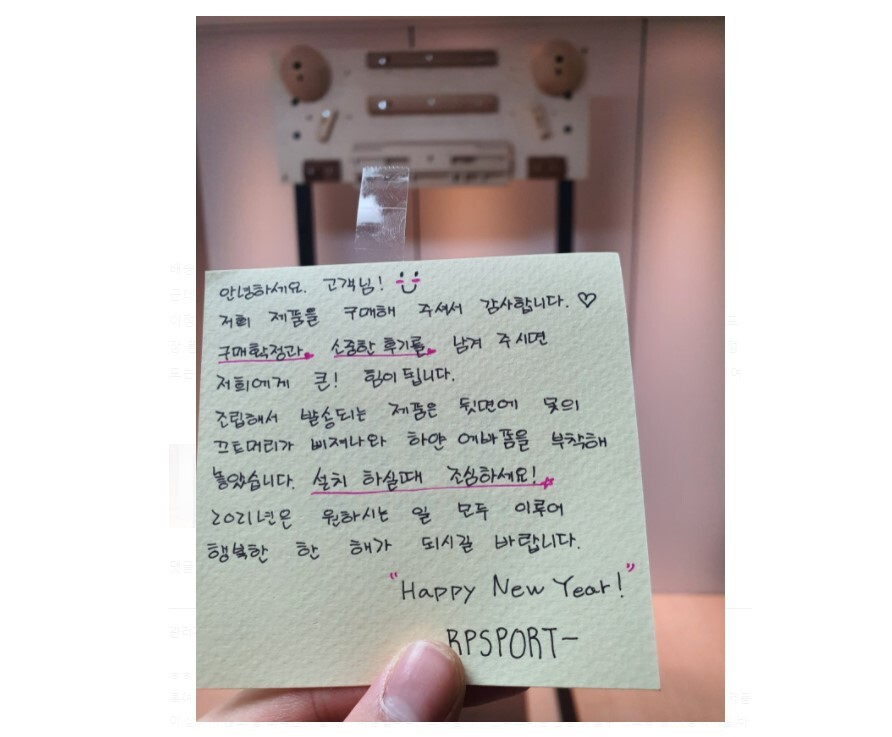 안녕하세요. 고객님!
저희 제품을 구매해 주셔서 감사합니다. ♡
구매확정과 소중한 후기를 남겨 주시면
저희에게 큰! 힘이 됩니다.
조립해서 발송되는 제품은 뒷면에 못의
끄트머리가 삐져나와 하얀 에바폼을 부착해
놓았습니다. 설치 하실때 조심하세요!
2021년은 원하시는 일 모두 이루어
행복한 한 해가 되시길 바랍니다.
"Happy New Year!"
RPSPORT-